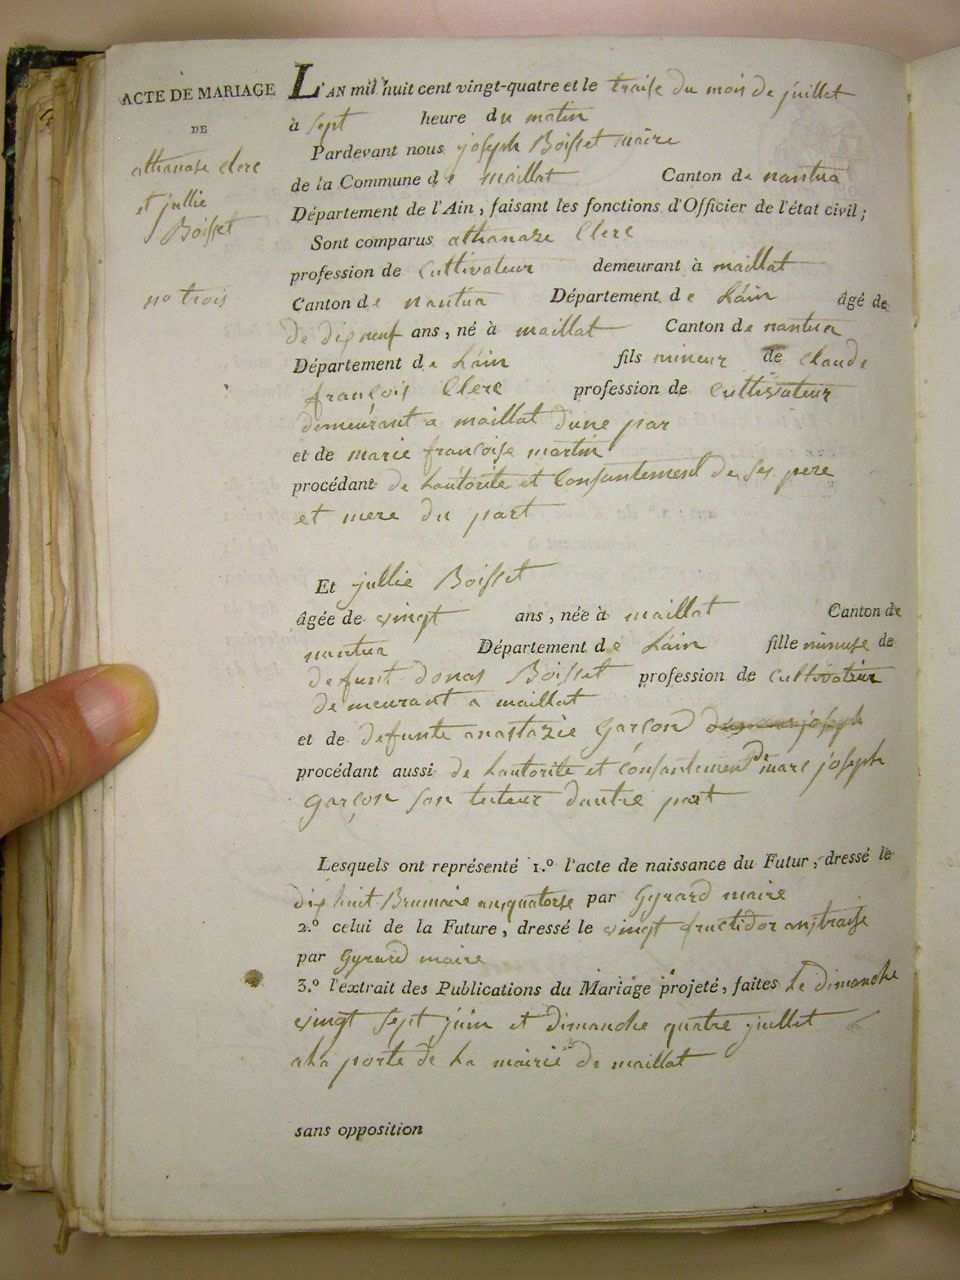 ACTE DE MARIAGE
DE
athanase clerc
et jullie
Boisset
no trois
L'AN mil huit cent vingt-quatre et le traise du mois de juillet
à sept heure du matin
Pardevant nous joseph Boisset maire
de la Commune de maillat Canton de nantua
Département de l'Ain, faisant les fonctions d'Officier de l'état civil;
Sont comparus athanaze Clerc
profession de Cultivateur demeurant à maillat
Canton de nantua Département de Láin âgé de
de dixneuf ans, né à maillat Canton de nantua
Département de Láin fils mineur de Claude
françois Clerc profession de Cultivateur
demeurant a maillat dune par
et de marie françoise martin
procédant de Lautorite et Consantement de ses pere
et mere du part
Et jullie Boisset
âgée de vingt ans, née à maillat Canton de
nantua Département de Láin fille mineure de
defunt donas Boisset profession de cultivateur
demeurant a maillat
et de defunte anastazie Garçon joseph
procédant aussi de Lautorite et consantement de marc joseph
Garçon son tuteur dautre part
Lesquels ont représenté 1.º l'acte de naissance du Futur, dressé le
dix huit Brumaire an quatorse par Gyrard maire
2.º celui de la Future, dressé le vingt fructidor an traise
par Gyrard maire
3.º l'extrait des Publications du Mariage projeté, faites Le dimanche
vingt sept juin et dimanche quatre juillet
a la porte de La mairie de maillat
sans opposition